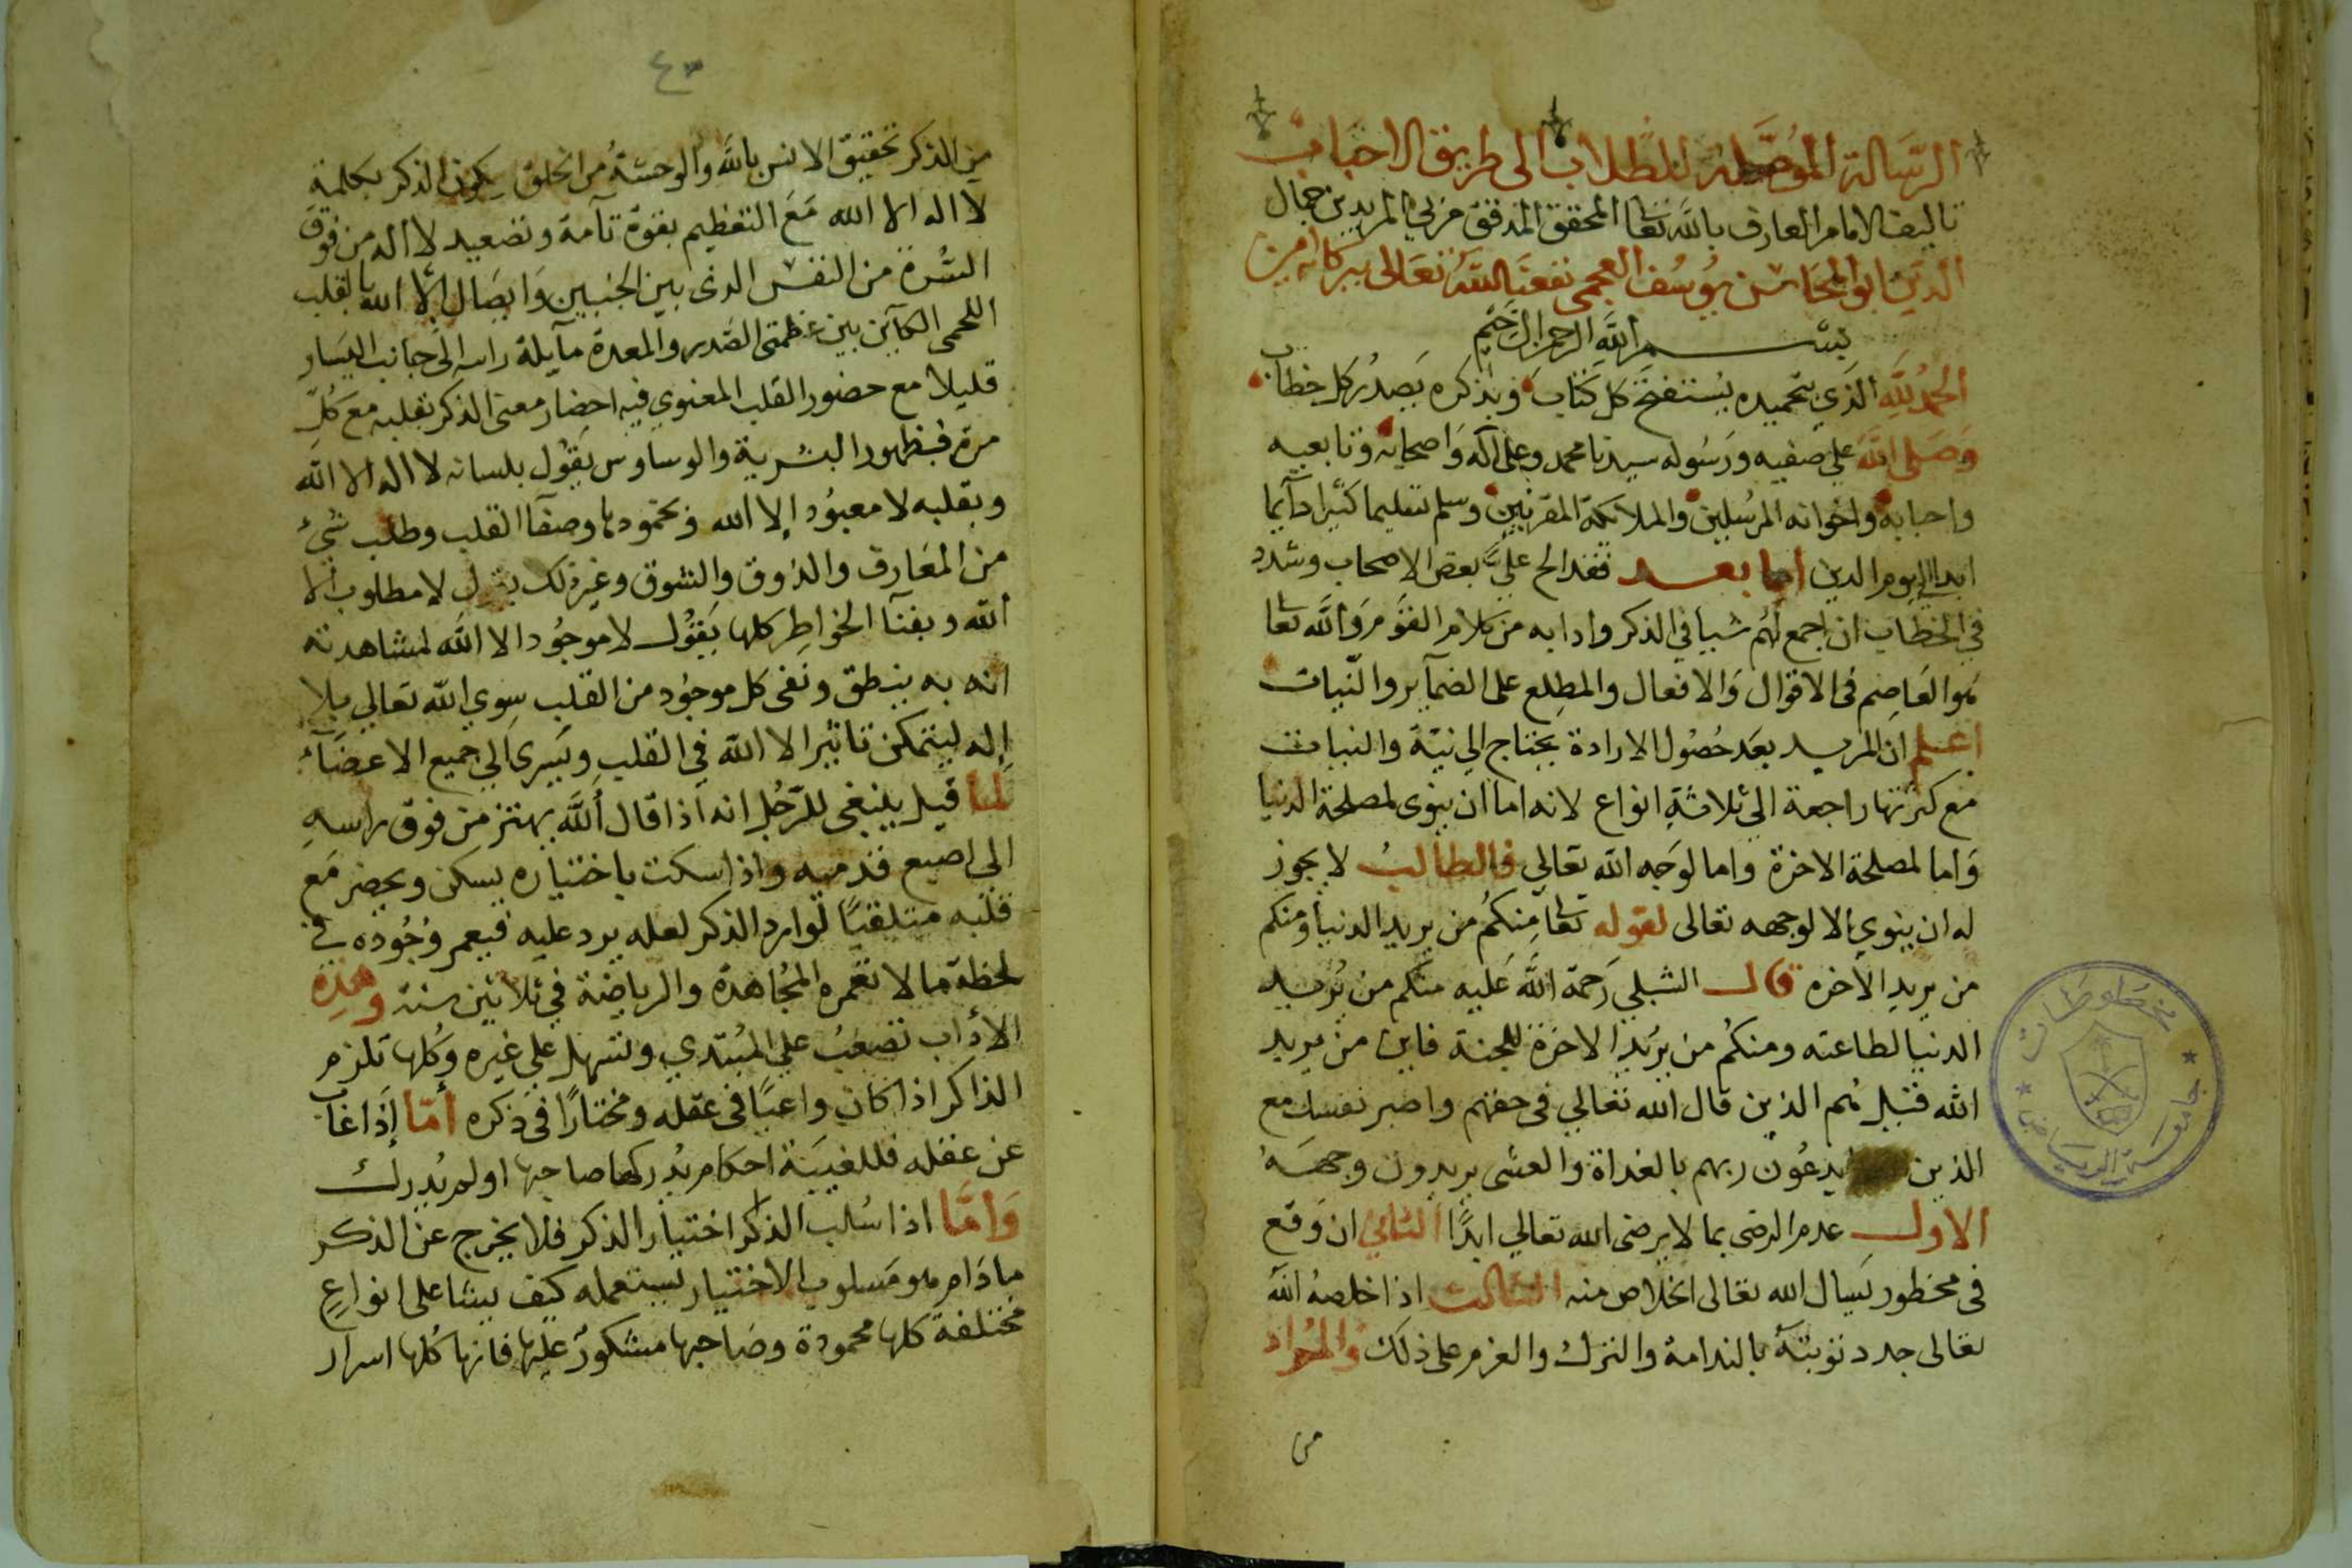 الرسالة الموصلة للطلاب الى طريق الاحباب
تاليف الامام العارف بالله تعا المحقق المدقق مربي المريدين جمال
الدين ابو المحاسن يوسف العجمى نفعنا الله تعالى ببركاته امين
بسم الله الرحمن الرحيم
الحمد لله الذي بتحميده يستفتح كل كتاب وبذكره يصدر كل خطاب
وصلى الله على صفيه ورسوله سيدنا محمد وعلى اله واصحابه وتابعيه
واحبابه واخوانه المرسلين والملائكة المقربين وسلم تسليما كثيرا دآيما
ابدا الى يوم الدين اما بعد فقد الح علي بعض الاصحاب وشدد
في الخطاب ان اجمع لهم شيا في الذكر وادابه من كلام القوم والله تعا
هو العاصم فى الاقوال والافعال والمطلع على الضمآير والنيات
اعلم ان المريد بعد حصول الارادة يحتاج الى نية والنيات
مع كثرتها راجعة الى ثلاثة انواع لانه اما ان ينوى لمصلحة الدنيا
واما لمصلحة الاخرة واما لوجه الله تعالى فالطالب لا يجوز
له ان ينوي الا لوجهه تعالى لقوله تعا منكم من يريد الدنيا ومنكم
من يريد الاخره قال الشبلي رحمة الله عليه منكم من يريد
الدنيا لطاعته ومنكم من يريد الاخرة للجنة فاين من يريد
الله فقيل هم الذين قال الله تعالي فى حقهم واصبر نفسك مع
الذين يدعون ربهم بالغداة والعشى يريدون وجهه
الاول عدم الرضى بما لا يرضى الله تعالي ابدًا الثاني ان وقع
فى محظور يسال الله تعالى الخلاص منه الثالث اذا خلصه الله
تعالى جدد توبته بالندامة والترك والعزم على ذلك والمراد
من
٤٣
من الذكر تحقيق الانس بالله والوحشة من الخلق يكون الذكر بكلمة
لا اله الا الله مع التعظيم بقوة تآمة وتصعيد لا اله من فوق
السرة من النفس الذى بين الجنبين وايصال الا الله بالقلب
اللحمى الكآين بين عظمتى الصدر والمعدة مآيلة راسه الى جانب اليسار
قليلا مع حضور القلب المعنوي فيه احضار معنى الذكر بقلبه مع كل
مرة فبظهور البشرية والوساوس يقول بلسانه لا اله الا الله
وبقلبه لا معبود إلا الله وبخمودها وصفآ القلب وطلب شيء
من المعارف والذوق والشوق وغير ذلك يقول لا مطلوب الا
الله وبفنآ الخواطر كلها يقول لا موجود الا الله لمشاهدته
انه به ينطق ونفى كل موجود من القلب سوي الله تعالي بلا
إله ليتمكن تاثير الا الله في القلب ويسرى الي جميع الاعضآء
لما قيل ينبغي للرجل انه اذا قال الله يهتز من فوق راسه
الى اصبع قدميه واذا سكت باختياره يسكن ويحضر مع
قلبه متلقيًا لوارد الذكر لعله يرد عليه فيعمر وجوده في
لحظة ما لا تعمره المجاهدة والرياضة في ثلاثين سنة وهذه
الأداب تصعب علي المبتدي وتسهل علي غيره وكلها تلزم
الذاكر اذا كان واعيًا فى عقله ومختارًا فى ذكره أمّا إذا غاب
عن عقله فللغيبة احكام يدركها صاحبها او لم يدرك
وامّا اذا سلب الذكر اختيار الذكر فلا يخرج عن الذكر
ما دام هو مسلوب الاختيار يستعمله كيف يشا على انواع
مختلفة كلها محمودة وصاحبها مشكور عليها فانها كلها اسرار
مخطوطات
جامعة الرياض